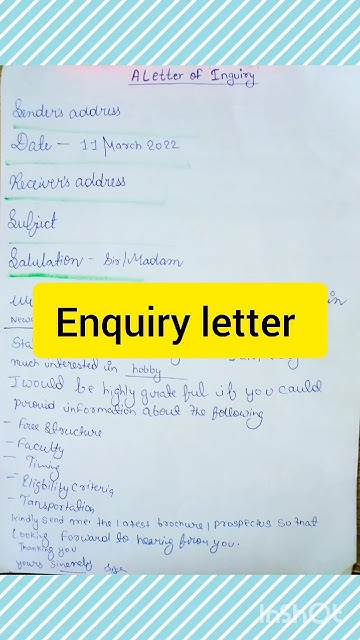 A Letter of Inquiry
Sender's address
Date - 11 March 2022
Receiver's address
Subject
Salulation - Sir/Madam
in
News
Enquiry letter
Sta
much interested in hobby
I would be highly grateful if you could
provid information about the following
- Free Structure
- Faculty
- Timing
- Eligibility Criteria
- Tansportation
kindly send me the latest brochure/prospectus so that
Looking forward to hearing from you.
Thanking you
yours Sincerely
InShOt